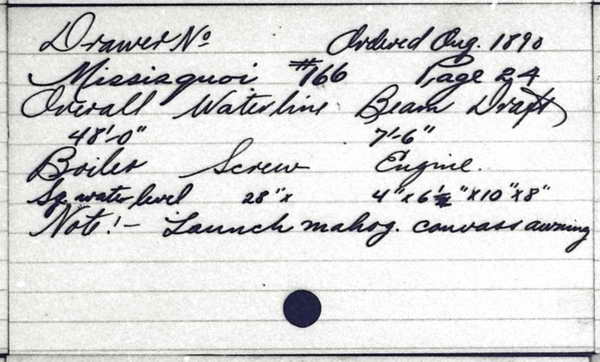 Drawer No Ordered Aug. 1890
Missisquoi #166 Page 24
Overall Waterline Beam Draft
48'-0" 7'-6"
Boiler Screw Engine.
Sq. water level 28"x 4"x6½"x10"x8"
Note!- Launch mahog. canvass awning